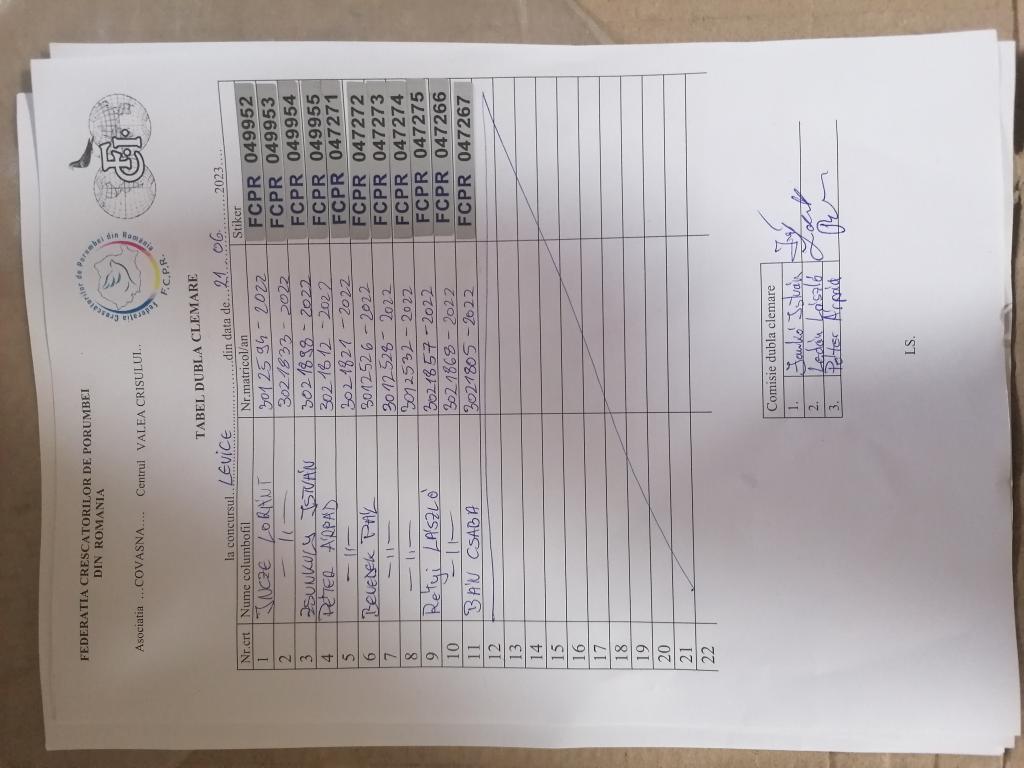 FEDERATIA CRESCATORILOR DE PORUMBEI
DIN ROMANIA
Federatia Crescatorilor de Porumbei din România
F.C.P.R.
Asociatia ...COVASNA.... Centrul VALEA CRISULUI..
TABEL DUBLA CLEMARE
la concursul..LEVICE...din data de...21...06...2023....
Nr.crt Nume columbofil Nr.matricol/an Stiker
1 INCZE LORÁNT 3012594 - 2022 FCPR 049952
2 —11— 3021833 - 2022 FCPR 049953
3 ISTVÁN 3021898 - 2022 FCPR 049954
4 PÉTER ÁRPÁD 3021812 - 2022 FCPR 049955
5 —11— 3021821 - 2022 FCPR 047271
6 BENEDEK PAL 3012526 - 2022 FCPR 047272
7 —11— 3012528 - 2022 FCPR 047273
8 —11— 3012532 - 2022 FCPR 047274
9 Rétyi LÁSZLÓ 3021857 - 2022 FCPR 047275
10 —11— 3021868 - 2022 FCPR 047266
11 BÁN CSABA 3021805 - 2022 FCPR 047267
12
13
14
15
16
17
18
19
20
21
22
Comisie dubla clemare
1. István
2. László
3. Péter Árpád
LS.